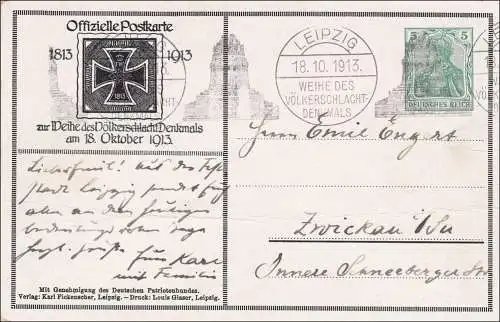 Offizielle Postkarte
1813 1913
1813
zur Weihe des Völkerschlacht Denkmals
am 18. Oktober 1913.
LEIPZIG
18.10.1913.
WEIHE DES
VÖLKERSCHLACHT-
DENKMALS
5 5
DEUTSCHES REICH
Herrn Emil Engert
Zwickau i/Sa
Innere Schneeberger Str
Aus der Fest
stadt Leipzig sendet
allen an dem heutigen
Grüße Euer Karl
mit Familie
Mit Genehmigung des Deutschen Patriotenbundes.
Verlag: Karl Fickenscher, Leipzig. – Druck: Louis Glaser, Leipzig.